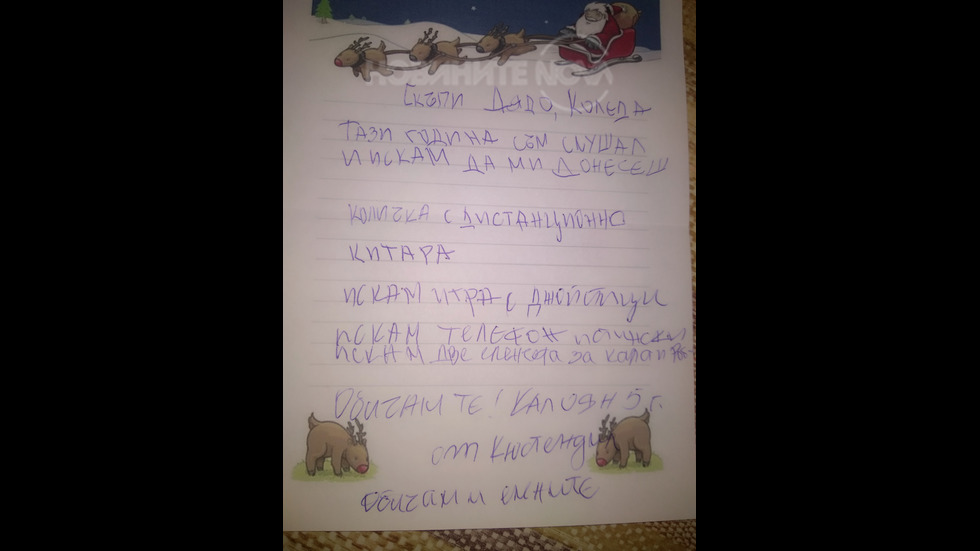 НОВИНИТЕ NOVA
Скъпи Дядо, Коледа
ТАЗИ ГОДИНА СЪМ СЛУШАЛ
И ИСКАМ ДА МИ ДОНЕСЕШ
КОЛИЧКА С ДИСТАНЦИОННО
КИТАРА
ИСКАМ ИГРА С ДЖОЙСТИЦИ
ИСКАМ ТЕЛЕФОН
ИСКАМ ДВЕ за карап
Обичам ТЕ! КАЛОЯН 5 г.
от Кюстендил
Обичам и ЕЛЕНИТЕ